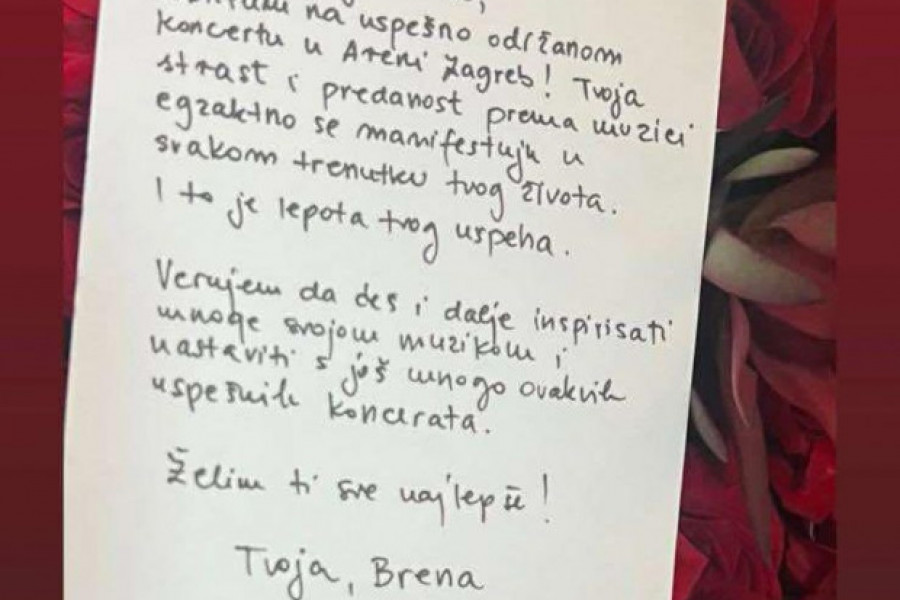 na uspešno održanom
koncertu u Areni Zagreb! Tvoja
strast i predanost prema muzici
egzaktno se manifestuju u
svakom trenutku tvog života.
I to je lepota tvog uspeha.
Verujem da ćeš i dalje inspirisati
mnoge svojom muzikom i
nastaviti s još mnogo ovakvih
uspešnih koncerata.
Želim ti sve najlepše!
Tvoja, Brena